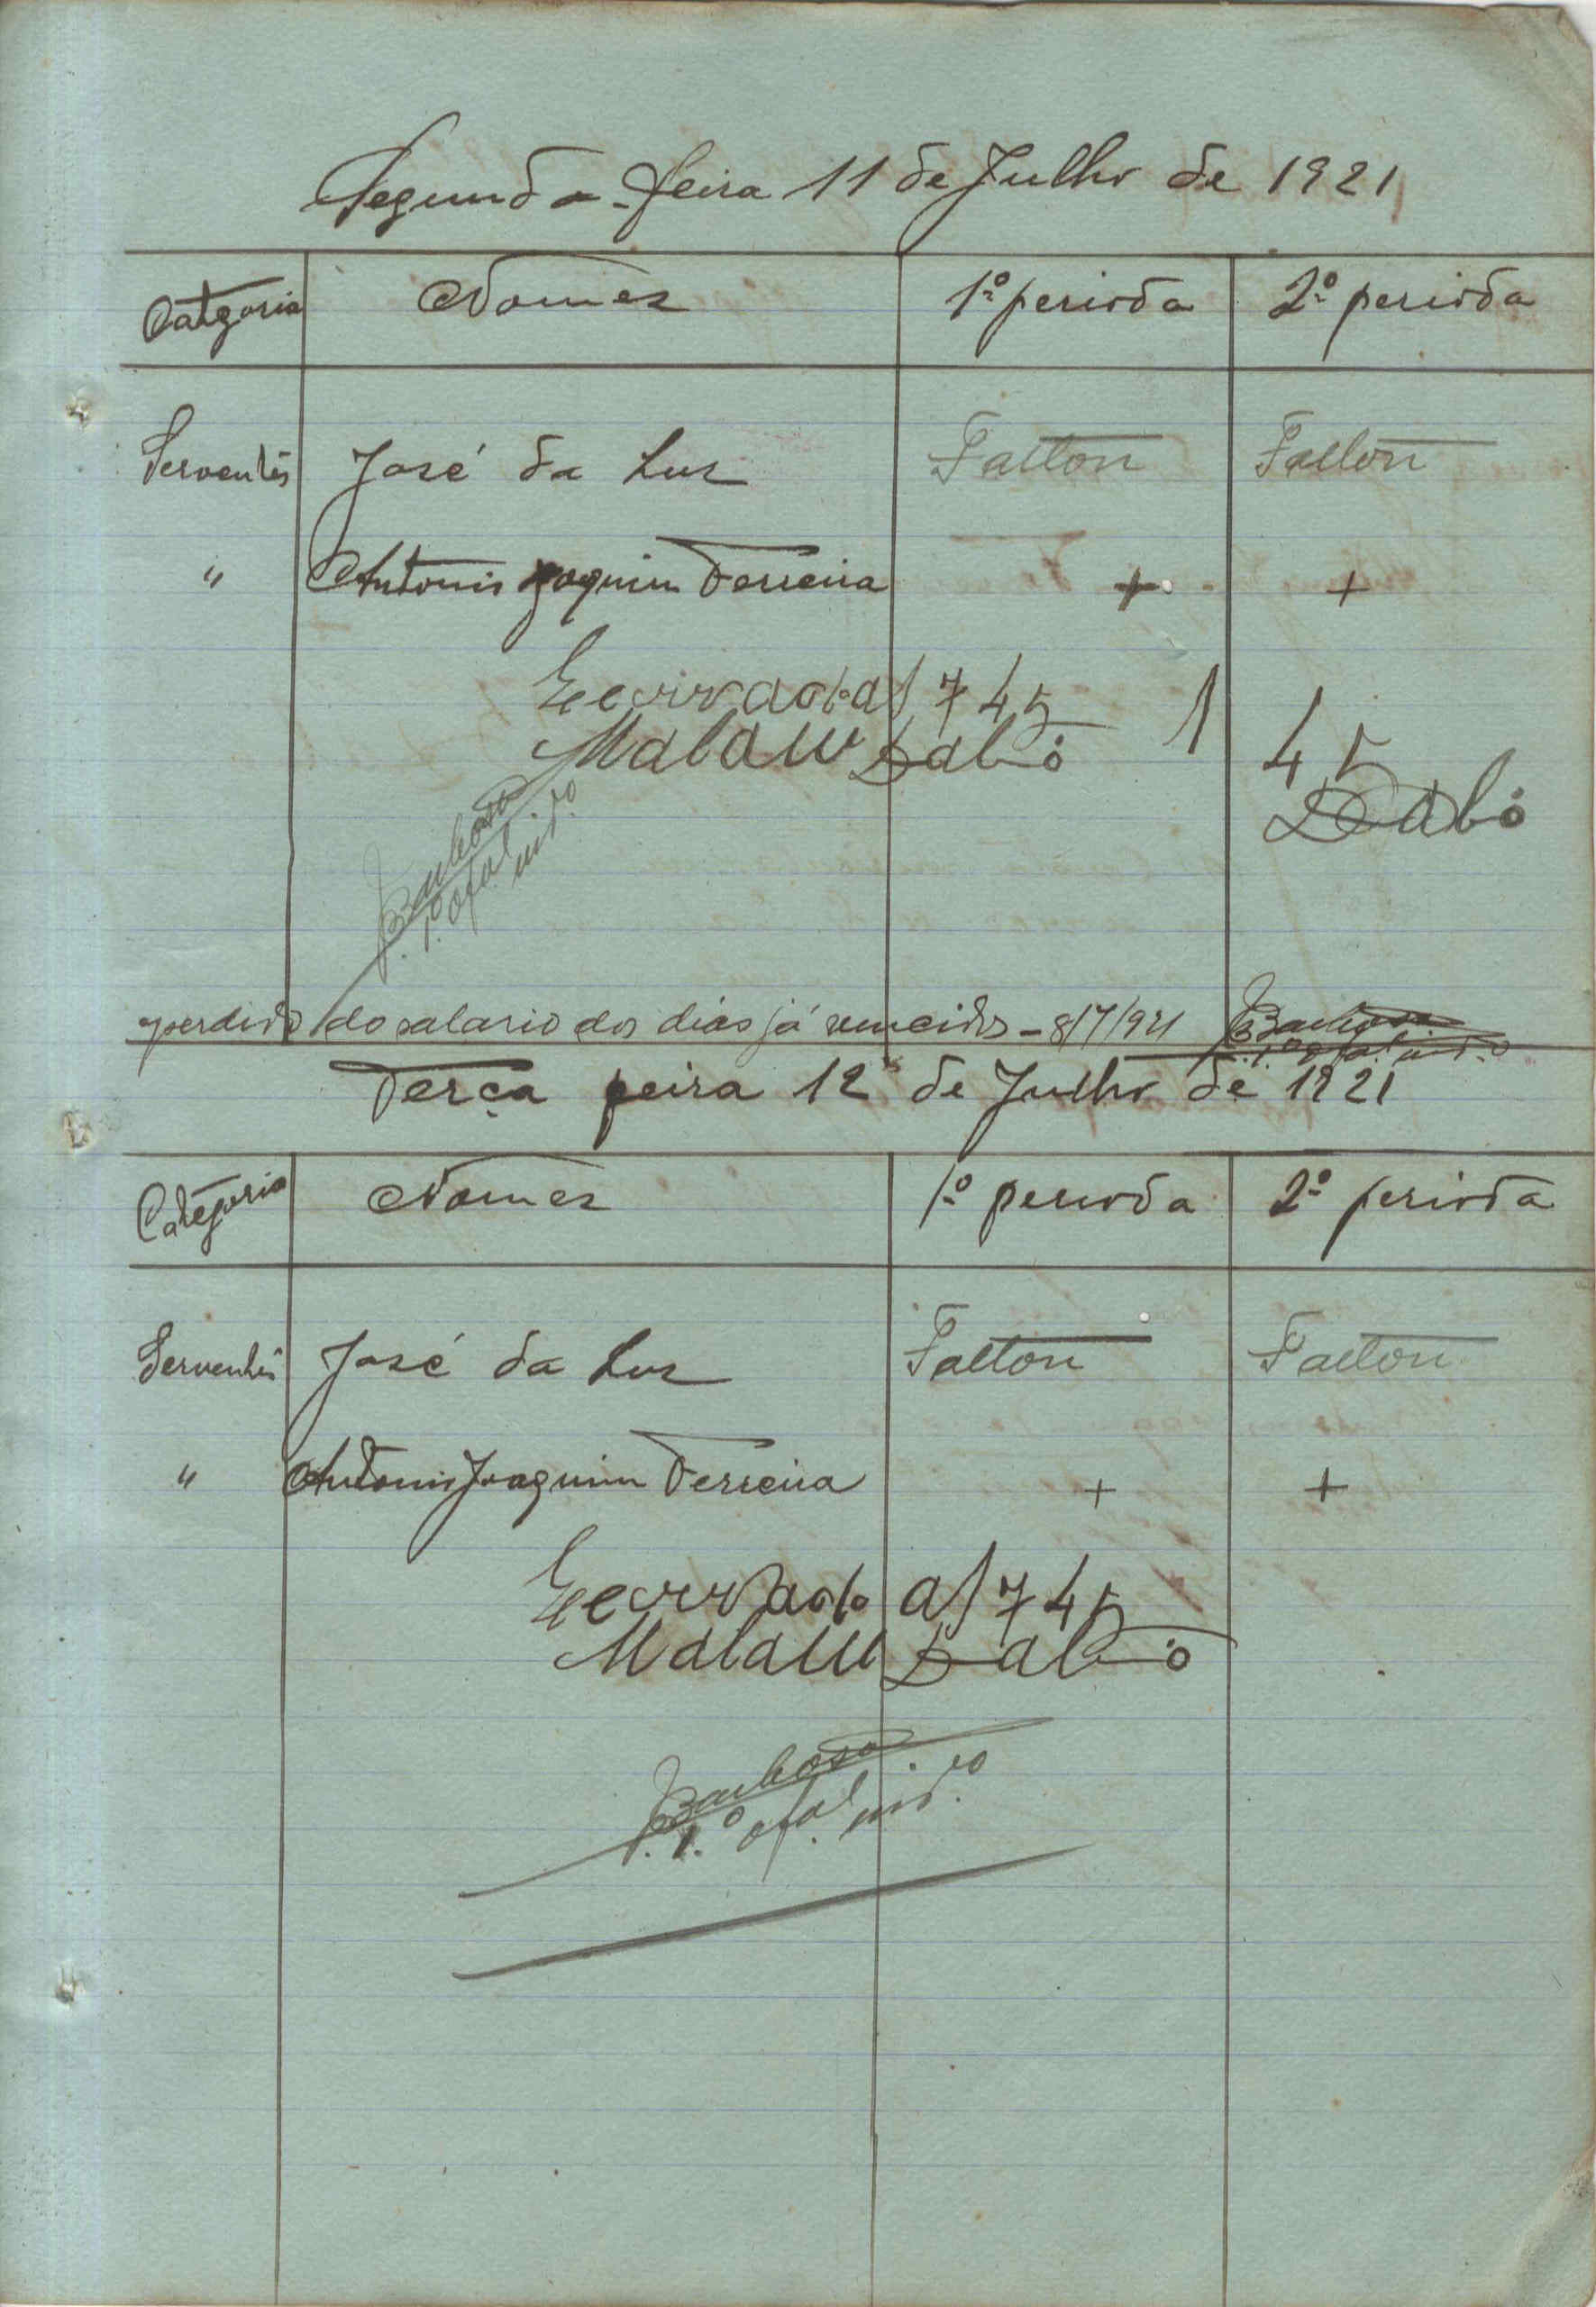 Segunda-feira 11 de Julho de 1921
Categoria Nomes 1º perioda 2º perioda
Serventes José da Luz Faltou Faltou
" Antonio Joaquim Ferreira + +
Eecirrado as 7 45 1 45
Malam Dabó Dabó
Barbosa
1.º ofal. indo
perdido do salario dos dias já vencidos - 8/7/921 Barbosa
1.º ofal. indo
Terça feira 12 de Julho de 1921
Categoria Nomes 1º perioda 2º perioda
Serventes José da Luz Faltou Faltou
" Antonio Joaquim Ferreira + +
Eecirrado as 7 45
Malam Dabó
Barbosa
1.º ofal. indo